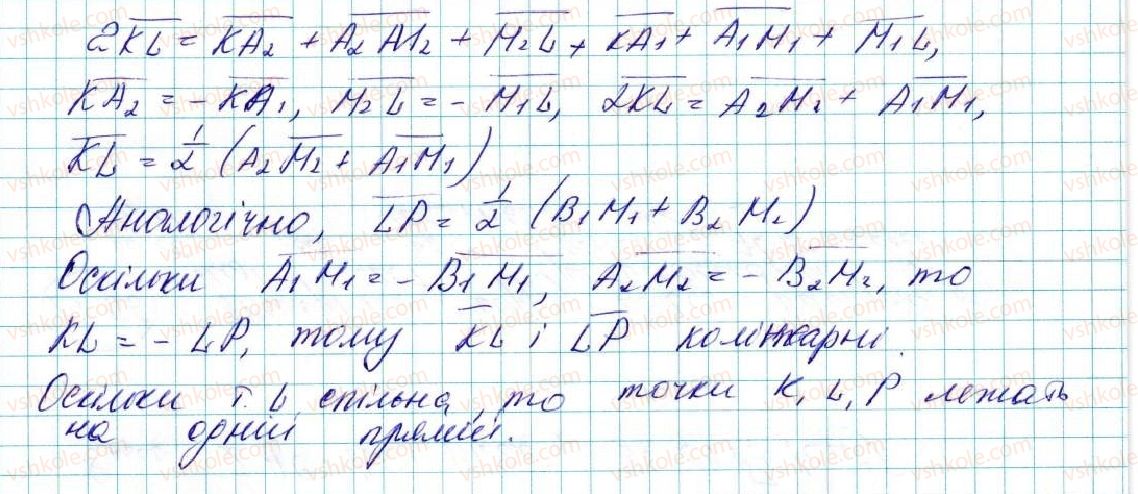 2KL = KA₂ + A₂M₂ + M₂L + KA₁ + A₁M₁ + M₁L,
KA₂ = - KA₁, M₂L = - M₁L, 2KL = A₂M₂ + A₁M₁,
KL = 1/2 (A₂M₂ + A₁M₁)
Аналогічно, LP = 1/2 (B₁M₁ + B₂M₂)
Оскільки A₁M₁ = - B₁M₁, A₂M₂ = - B₂M₂, то
KL = - LP, тому KL і LP колінеарні.
Оскільки т. L спільна, то точки K, L, P лежать
на одній прямій.